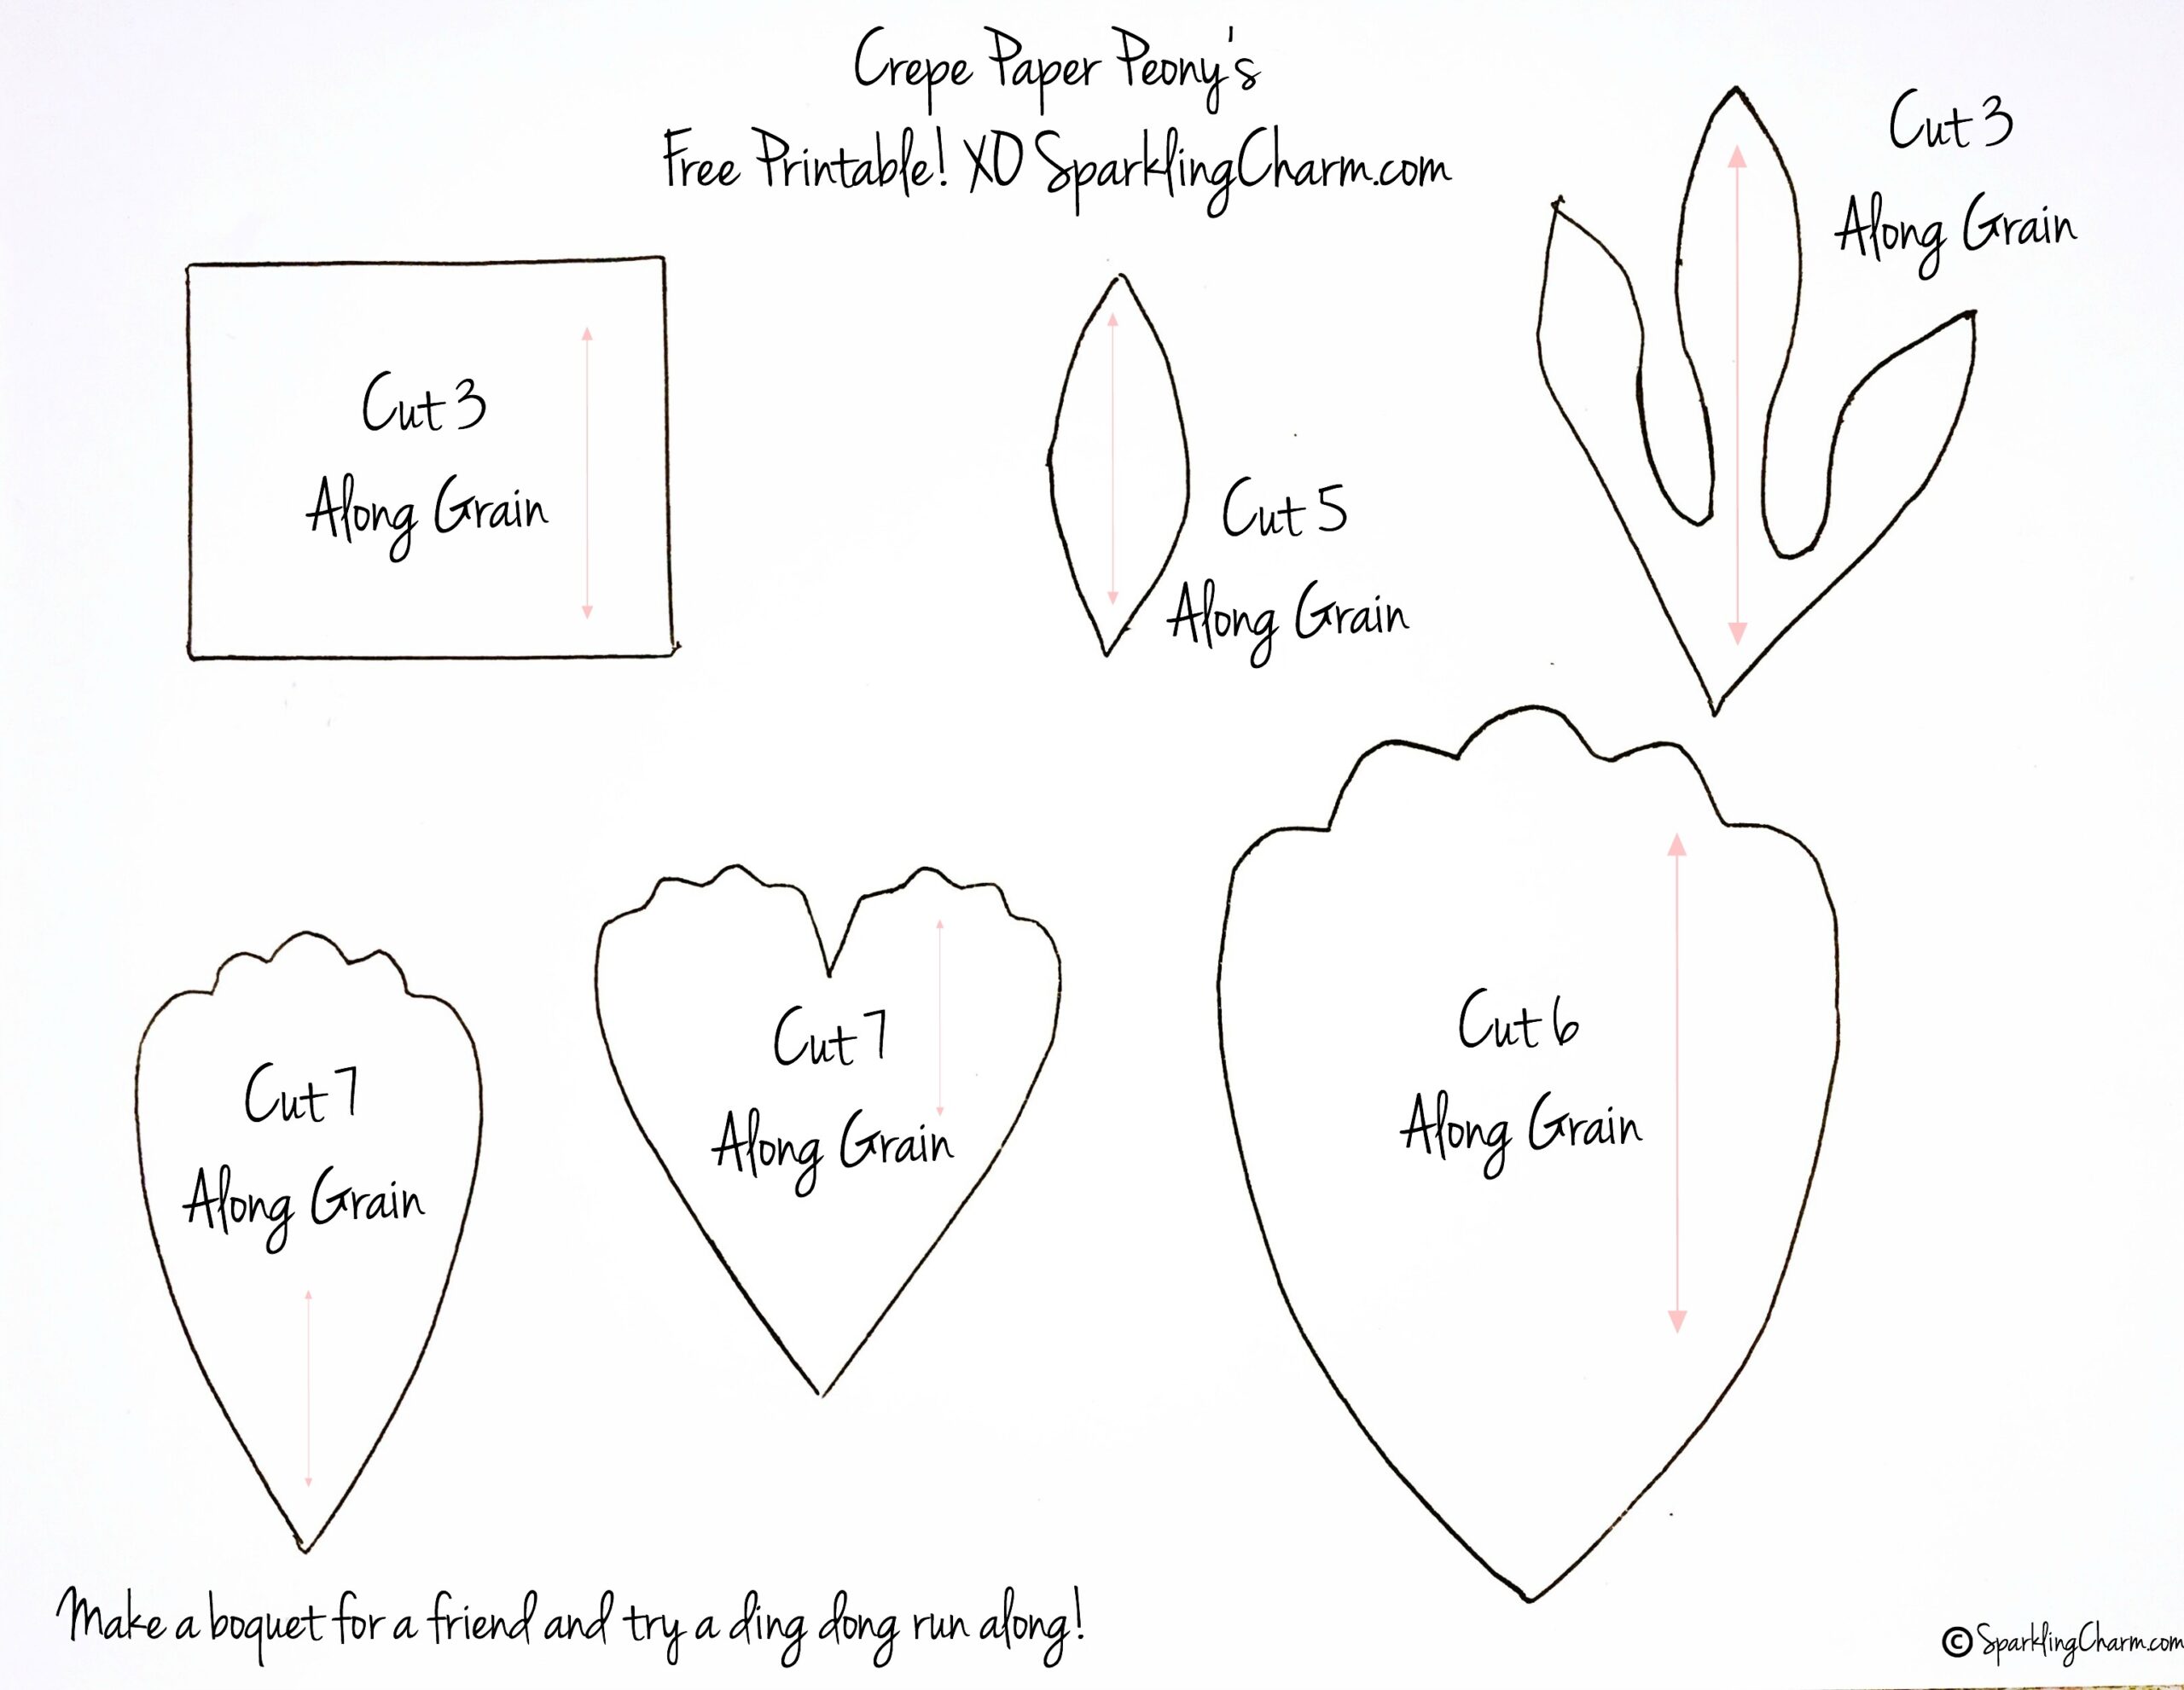 Crepe Paper Peony's
Free Printable! XO SparklingCharm.com
Cut 3
Along Grain
Cut 3
Along Grain
Cut 5
Along Grain
Cut 7
Along Grain
Cut 7
Along Grain
Cut 6
Along Grain
Make a boquet for a friend and try a ding dong run along!
© SparklingCharm.com